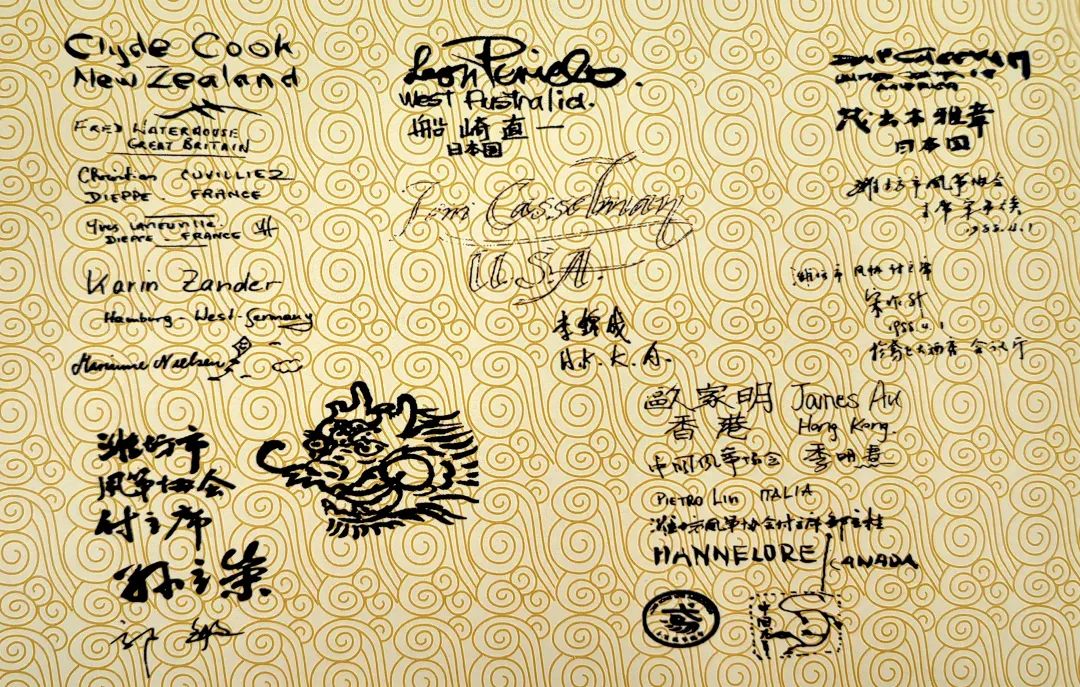 Clyde Cook
New Zealand
FRED WATERHOUSE
GREAT BRITAIN
Christian CUVILLIEZ
DIEPPE . FRANCE
Yves
DIEPPE . FRANCE
Karin Zander
Hamburg - West-Germany
Marianne Nielsen
潍坊市
风筝协会
付主席
孙立荣
Leon
West Australia.
船崎直一
日本国
Casselman
U.S.A.
李锦成
H.K.K.A.
AMERICA
茂出木雅章
日本国
潍坊市风筝协会
主席
1988.4.1
潍坊市风协付主席
1988.4.1
歐家明 James Au
香港 Hong Kong
中国风筝协会 李明君
PIETRO LIN ITALIA
潍坊风筝协会付主席
HANNELORE CANADA